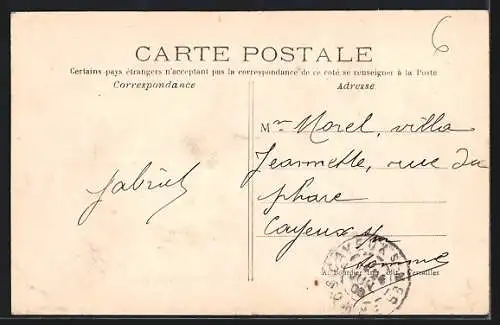 6
CARTE POSTALE
Certains pays étrangers n'acceptant pas la correspondance de ce côté se renseigner à la Poste
Correspondance
Adresse
Mr Morel, villa
Jeannette, rue du
phare
Cayeux s/
Somme
Gabriel
CAYEUX-S-MER